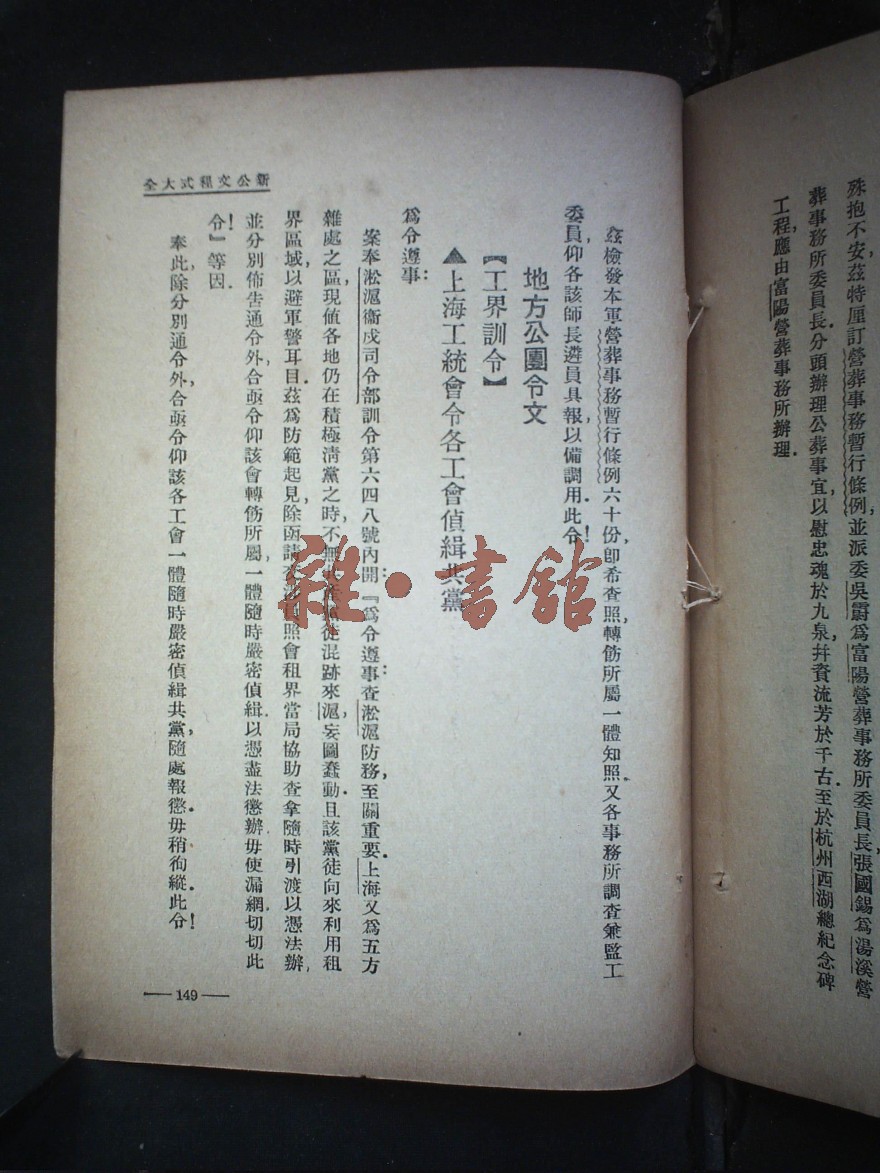 殊抱不安茲特厘訂營葬事務暫行條例，並派委吳嶎爲富陽營葬事務所委員長，張國錫爲湯溪營
葬事務所委員長．分頭辦理公葬事宜，以慰忠魂於九泉，幷資流芳於千古．至於杭州西湖總紀念碑
工程，應由富陽營葬事務所辦理．
新公文程式大全
茲檢發本軍營葬事務暫行條例六十份，卽希查照，轉飭所屬一體知照．又各事務所調查兼監工
委員，仰各該師長遴員具報，以備調用．此令！
地方公團令文
【工界訓令】
▲上海工統會令各工會偵緝共黨
爲令遵事：
案奉淞滬衞戍司令部訓令第六四八號內開：『爲令遵事：查淞滬防務，至關重要．上海又爲五方
雜處之區，現値各地仍在積極淸黨之時，不無徒混跡來滬，妄圖蠢動．且該黨徒向來利用租
界區域，以避軍警耳目．茲爲防範起見，除函請照會租界當局協助查拿，隨時引渡，以憑法辦，
並分別佈告通令外，合亟令仰該會轉飭所屬，一體隨時嚴密偵緝．以憑盡法懲辦．毋使漏網．切切此
令！』等因．
奉此，除分別通令外，合亟令仰該各工會一體隨時嚴密偵緝共黨，隨處報懲．毋稍徇縱．此令！
—149—
雜·書館